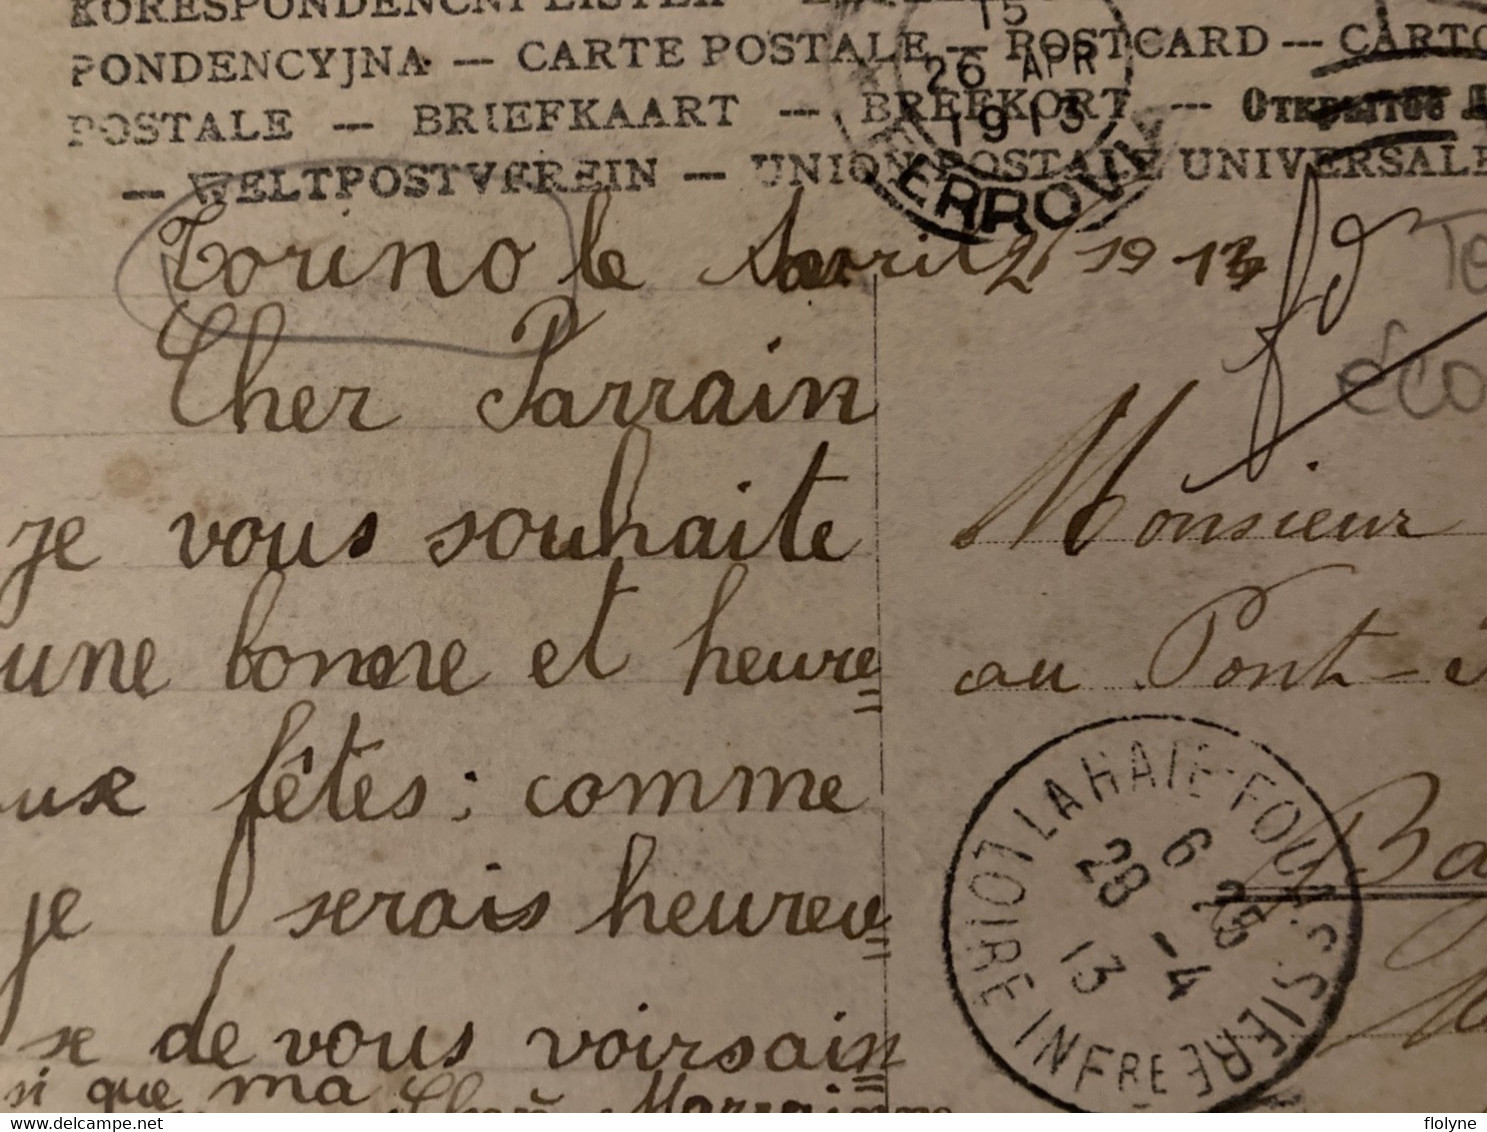 KORESPONDENCNI LISTEK —
PONDENCYJNA — CARTE POSTALE — POSTCARD — CARTO
POSTALE — BRIEFKAART — BREFKORT —
— WELTPOSTVEREIN — UNION POSTALE UNIVERSALE
15
26 APR
1913
FERROVIA
Torino le Avril 2 1913
Cher Parrain
je vous souhaite
une bonne et heure
use fêtes : comme
je serais heureu
se de vous voirsain
si que ma
Monsieur
au Pont-
LA HAIE-FOUASSIERE
LOIRE INFRE
6 25
28 -4
13
flolyne